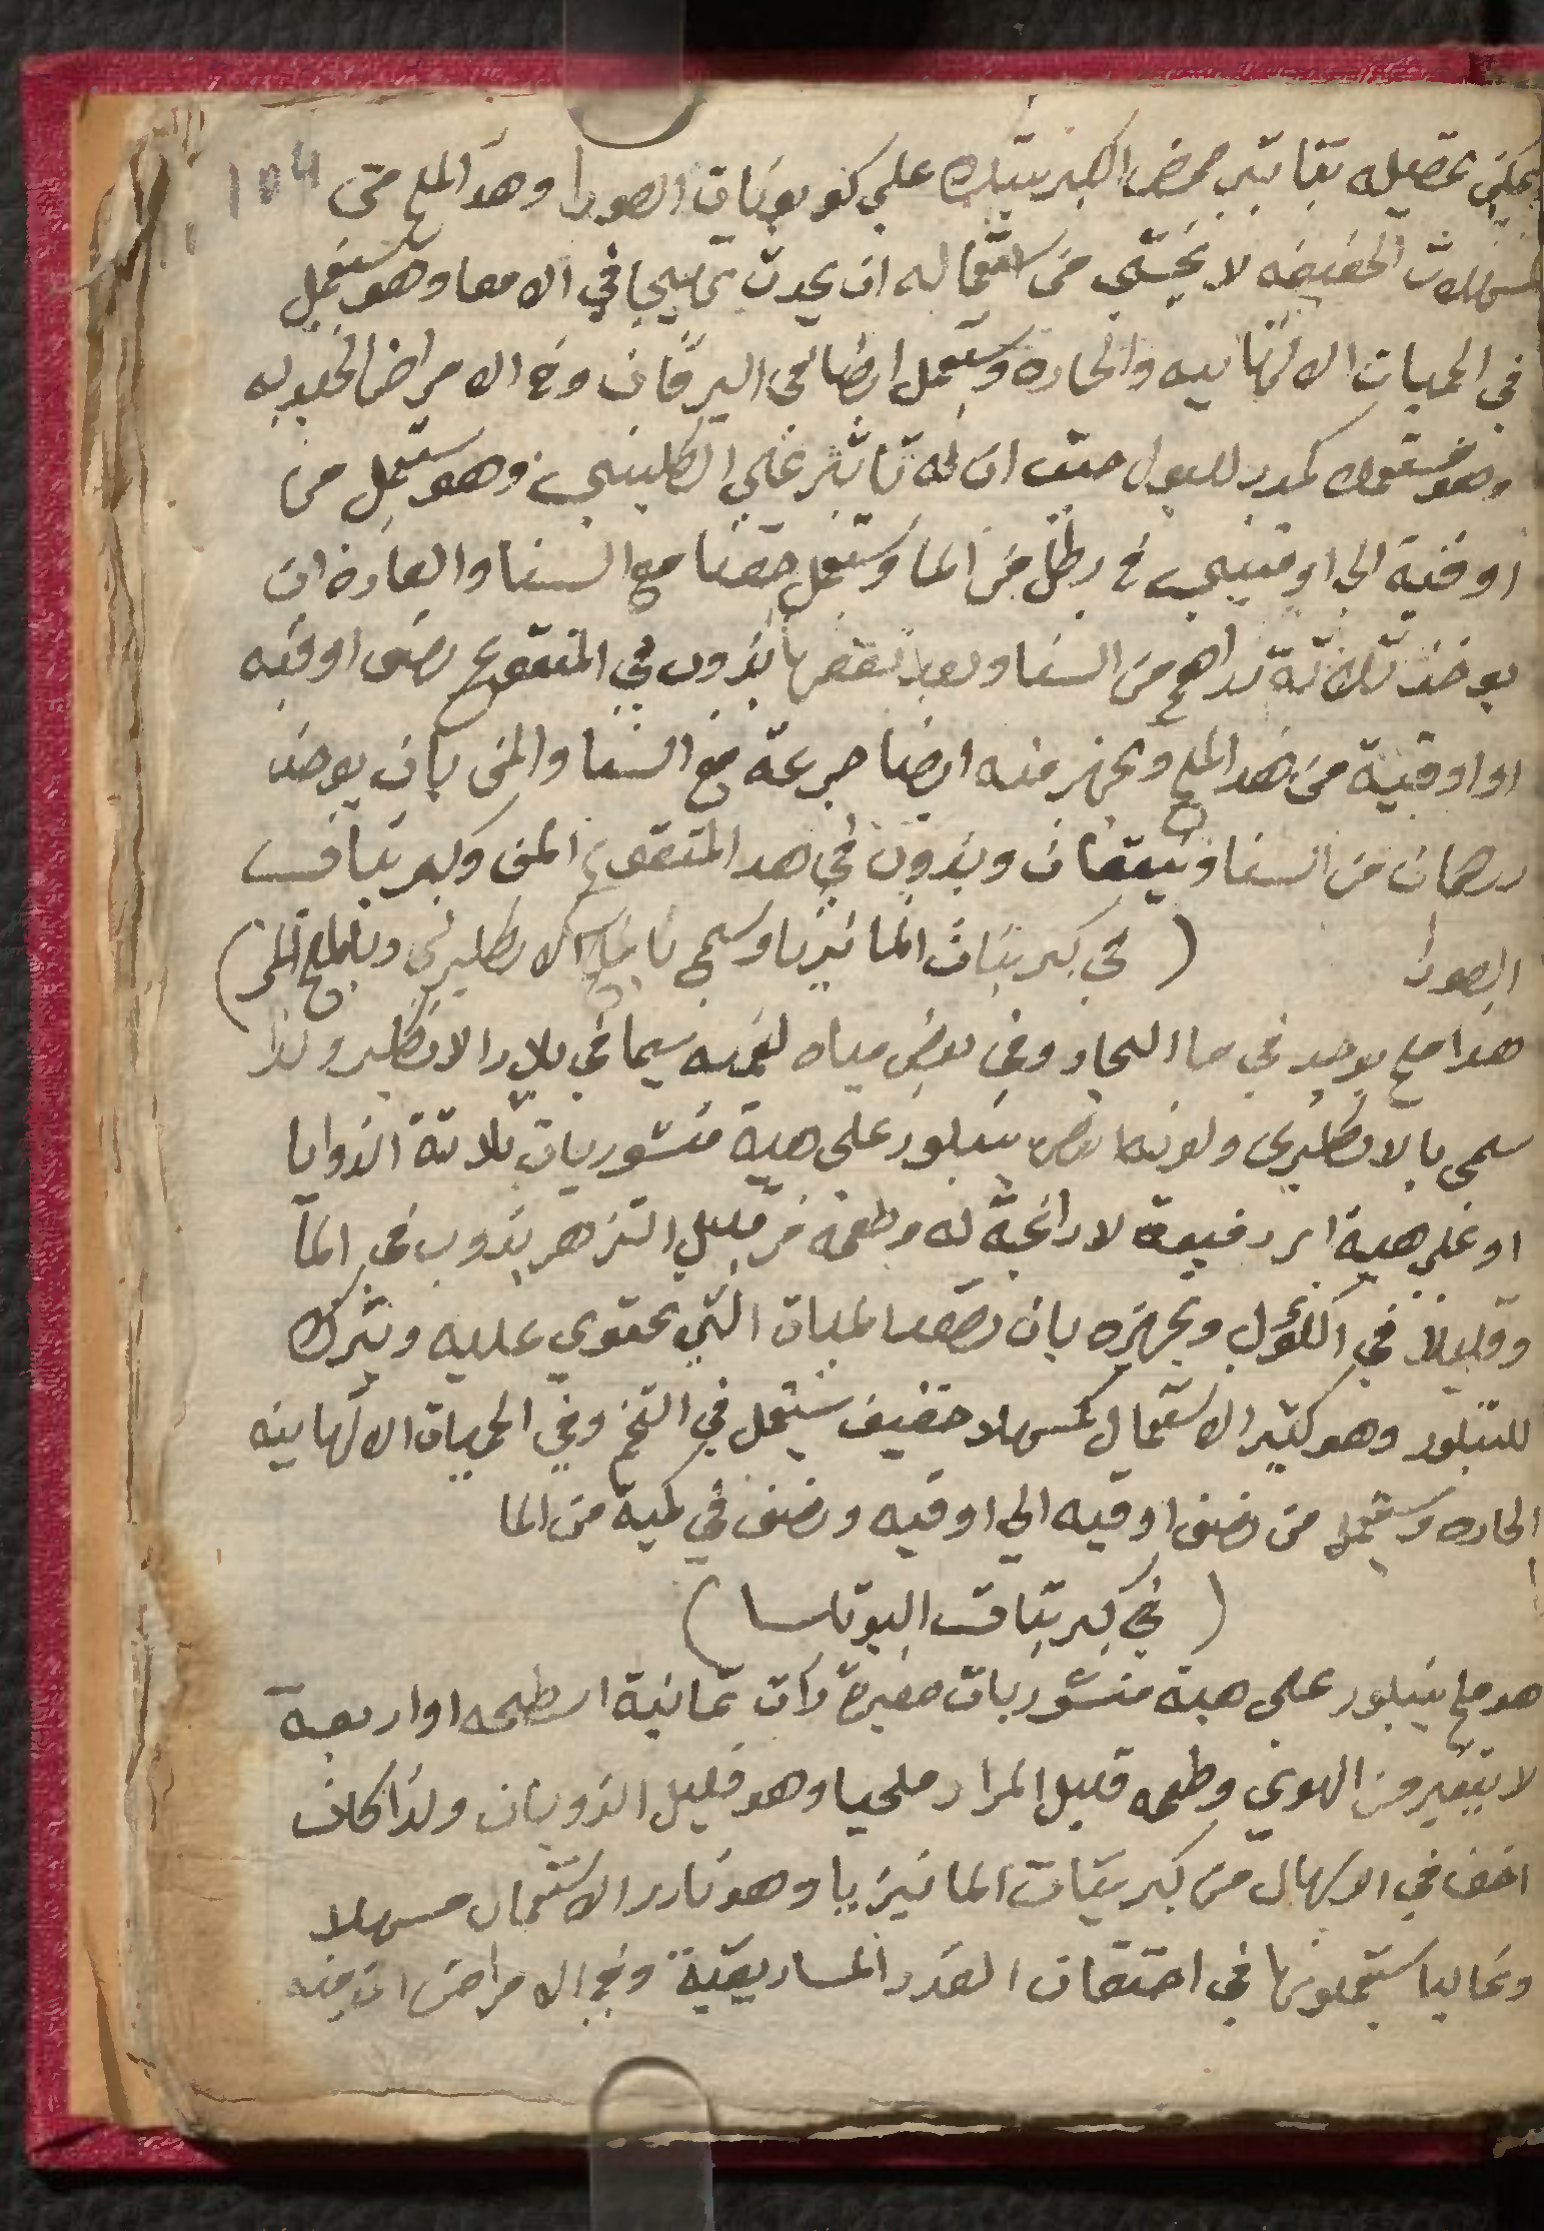 ويمكن تحصيله بتاتير حمض الكبريتيك علي كربونات الصودا وهذا الملح من
104
المسهلات الخفيفه لا يخشي من استعماله ان يحدث تهييجا في الامعا وهو يستعمل
في الحميات الالتهابيه والحاده ويستعمل ايضا في اليرقان وفي الامراض الجلديه
وهو مستعمل كمدر للبول حيث ان له تاثير علي الكليتين وهو يستعمل من
اوقية الي اوقيتين في رطل من الما ويستعمل حقنا مع السنا والعادة ان
يوخذ ثلاثة دراهم من السنا وبعد نقعها يذوب في المنقوع نصف اوقيه
او اوقية من هذا الملح ويجهز منه ايضا جرعة مع السنا والمن بان يوخذ
درهمان من السنا وينقعان ويذوب في هذا المنقوع المن وكبريتات
الصودا
( في كبريتات المانيزيا ويسمي بالملح الانكليزي وبالملح المر )
هذا ملح يوجد في ما البحار وفي بعض مياه سيما في بلاد الانكليز ولذا
سمي بالانكليزي ولونه ابيض يتبلور علي هية منشوريات ثلاثة الزوايا
او علي هية ابر رفيعة لا رائحة له وطعمه مر قليل التزهر يذوب في الما
وقليلا في الكؤل ويجهز بان تصعد المياه التي تحتوي عليه ويترك
للتبلور وهو كثير الاستعمال كمسهلا خفيف يستعمل في التخم وفي الحميات الالتهابيه
الحاده ويستعمل من نصف اوقيه الي اوقيه ونصف في كمية من الما
( في كبريتات البوتاسا )
هو ملح يتبلور علي هية منشوريات صغيرة ذات ثمانية اسطحه او اربعة
لا يتغير من الهوي وطعمه قليل المرار ملحيا وهو قليل الذوبان ولذا كان
اخف في الاسهال من كبريتات المانيزيا وهو نادر الاستعمال مسهلا
وغالبا يستعملونها في احتقان الغدد المساريقية وفي الامراض